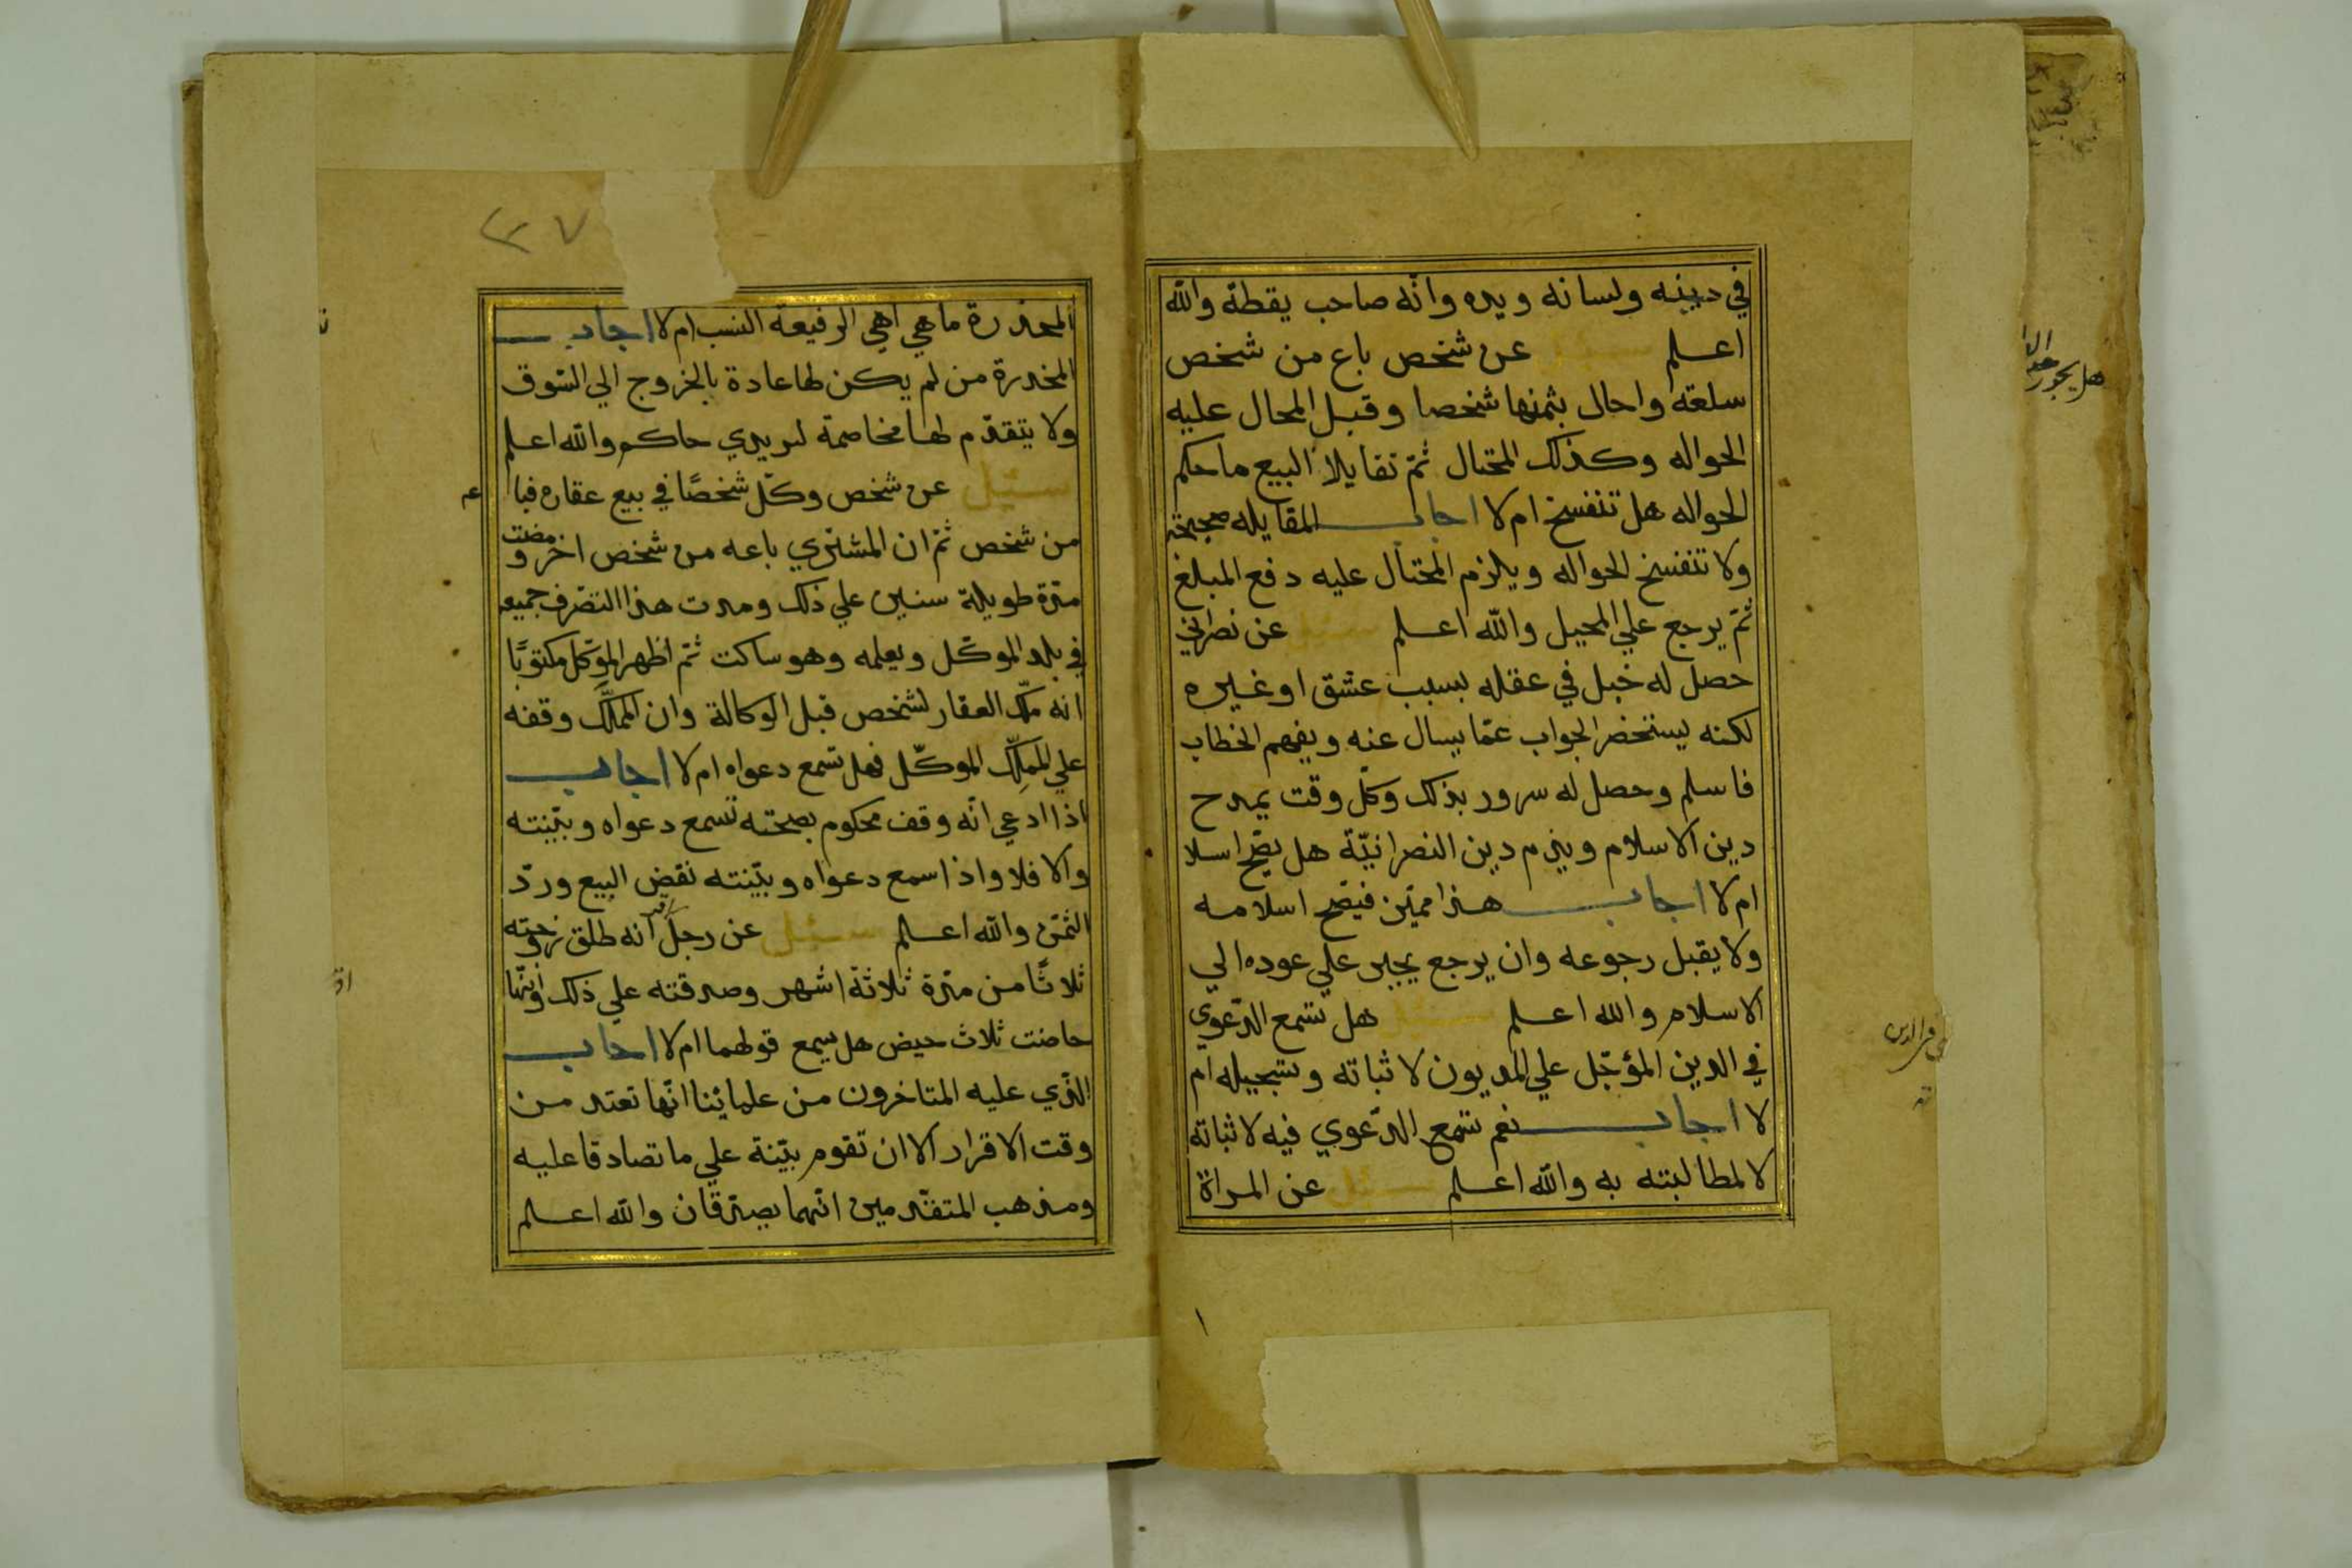 في دينه ولسانه ويده وانّه صاحب يقظة والله
اعلم سئل عن شخص باع من شخص
سلعة واحال بثمنها شخصا وقبل المحال عليه
الحواله وكذلك المحتال ثمّ تقايلا البيع ما حكم
الحواله هل تنفسخ ام لا اجاب المقايله صحيحة
ولا تنفسخ الحواله ويلزم المحتال عليه دفع المبلغ
ثمّ يرجع علي المحيل والله اعلم سئل عن نصراني
حصل له خبل في عقله بسبب عشق او غيره
لكنه يستحضر الجواب عمّا يسال عنه ويفهم الخطاب
فاسلم وحصل له سرور بذلك وكلّ وقت يمدح
دين الاسلام ويذم دين النصرانيّة هل يصّح اسلا
ام لا اجاب هذا مميّز فيصّح اسلامه
ولا يقبل رجوعه وان يرجع يجبر علي عوده الي
الاسلام والله اعلم سئل هل تسمع الدّعوي
في الدين المؤجّل علي المديون لاثباته وتسجيله ام
لا اجاب نعم تسمع الدّعوي فيه لاثباته
لا لمطالبته به والله اعلم سئل عن المراة
٣٧
المخدرة ما هي اهي الرفيعة النسب ام لا اجاب
المخدرة من لم يكن لها عادة بالخروج الي السّوق
ولا يتقدّم لها مخاصمة لدي يدي حاكم والله اعلم
سئيل عن شخص وكّل شخصًا في بيع عقاره فبا ع
من شخص ثمّ ان المشتري باعه من شخص اخر ومضت
مدّة طويلة سنين علي ذلك ومدت هذا التصّرف جميعه
في بلد الموكّل ويعلمه وهو ساكت ثمّ اظهر الموّكل مكتوبًا
انه ملّك العقار لشخص قبل الوكالة وان المملَّك وقفه
علي المملِّك الموكّل فهل تسمع دعواه ام لا اجاب
اذا ادعي انّه وقف محكوم بصحته تسمع دعواه وبيّنته
والا فلا واذا سمع دعواه وبيّنته نقض البيع وردّ
الثمّن والله اعلم سئل عن رجل اقر انه طلق زوجته
ثلاثًا من مدّة ثلاثة اشهر وصدقته علي ذلك وانّها
حاضت ثلاث حيض هل يسمع قولهما ام لا اجاب
الّذي عليه المتاخرون من علمائنا انّها تعتد من
وقت الاقرار الا ان تقوم بيّنة علي ما تصادقا عليه
ومذهب المتقدّمين انّهما يصدّقان والله اعلم
هل يجوز